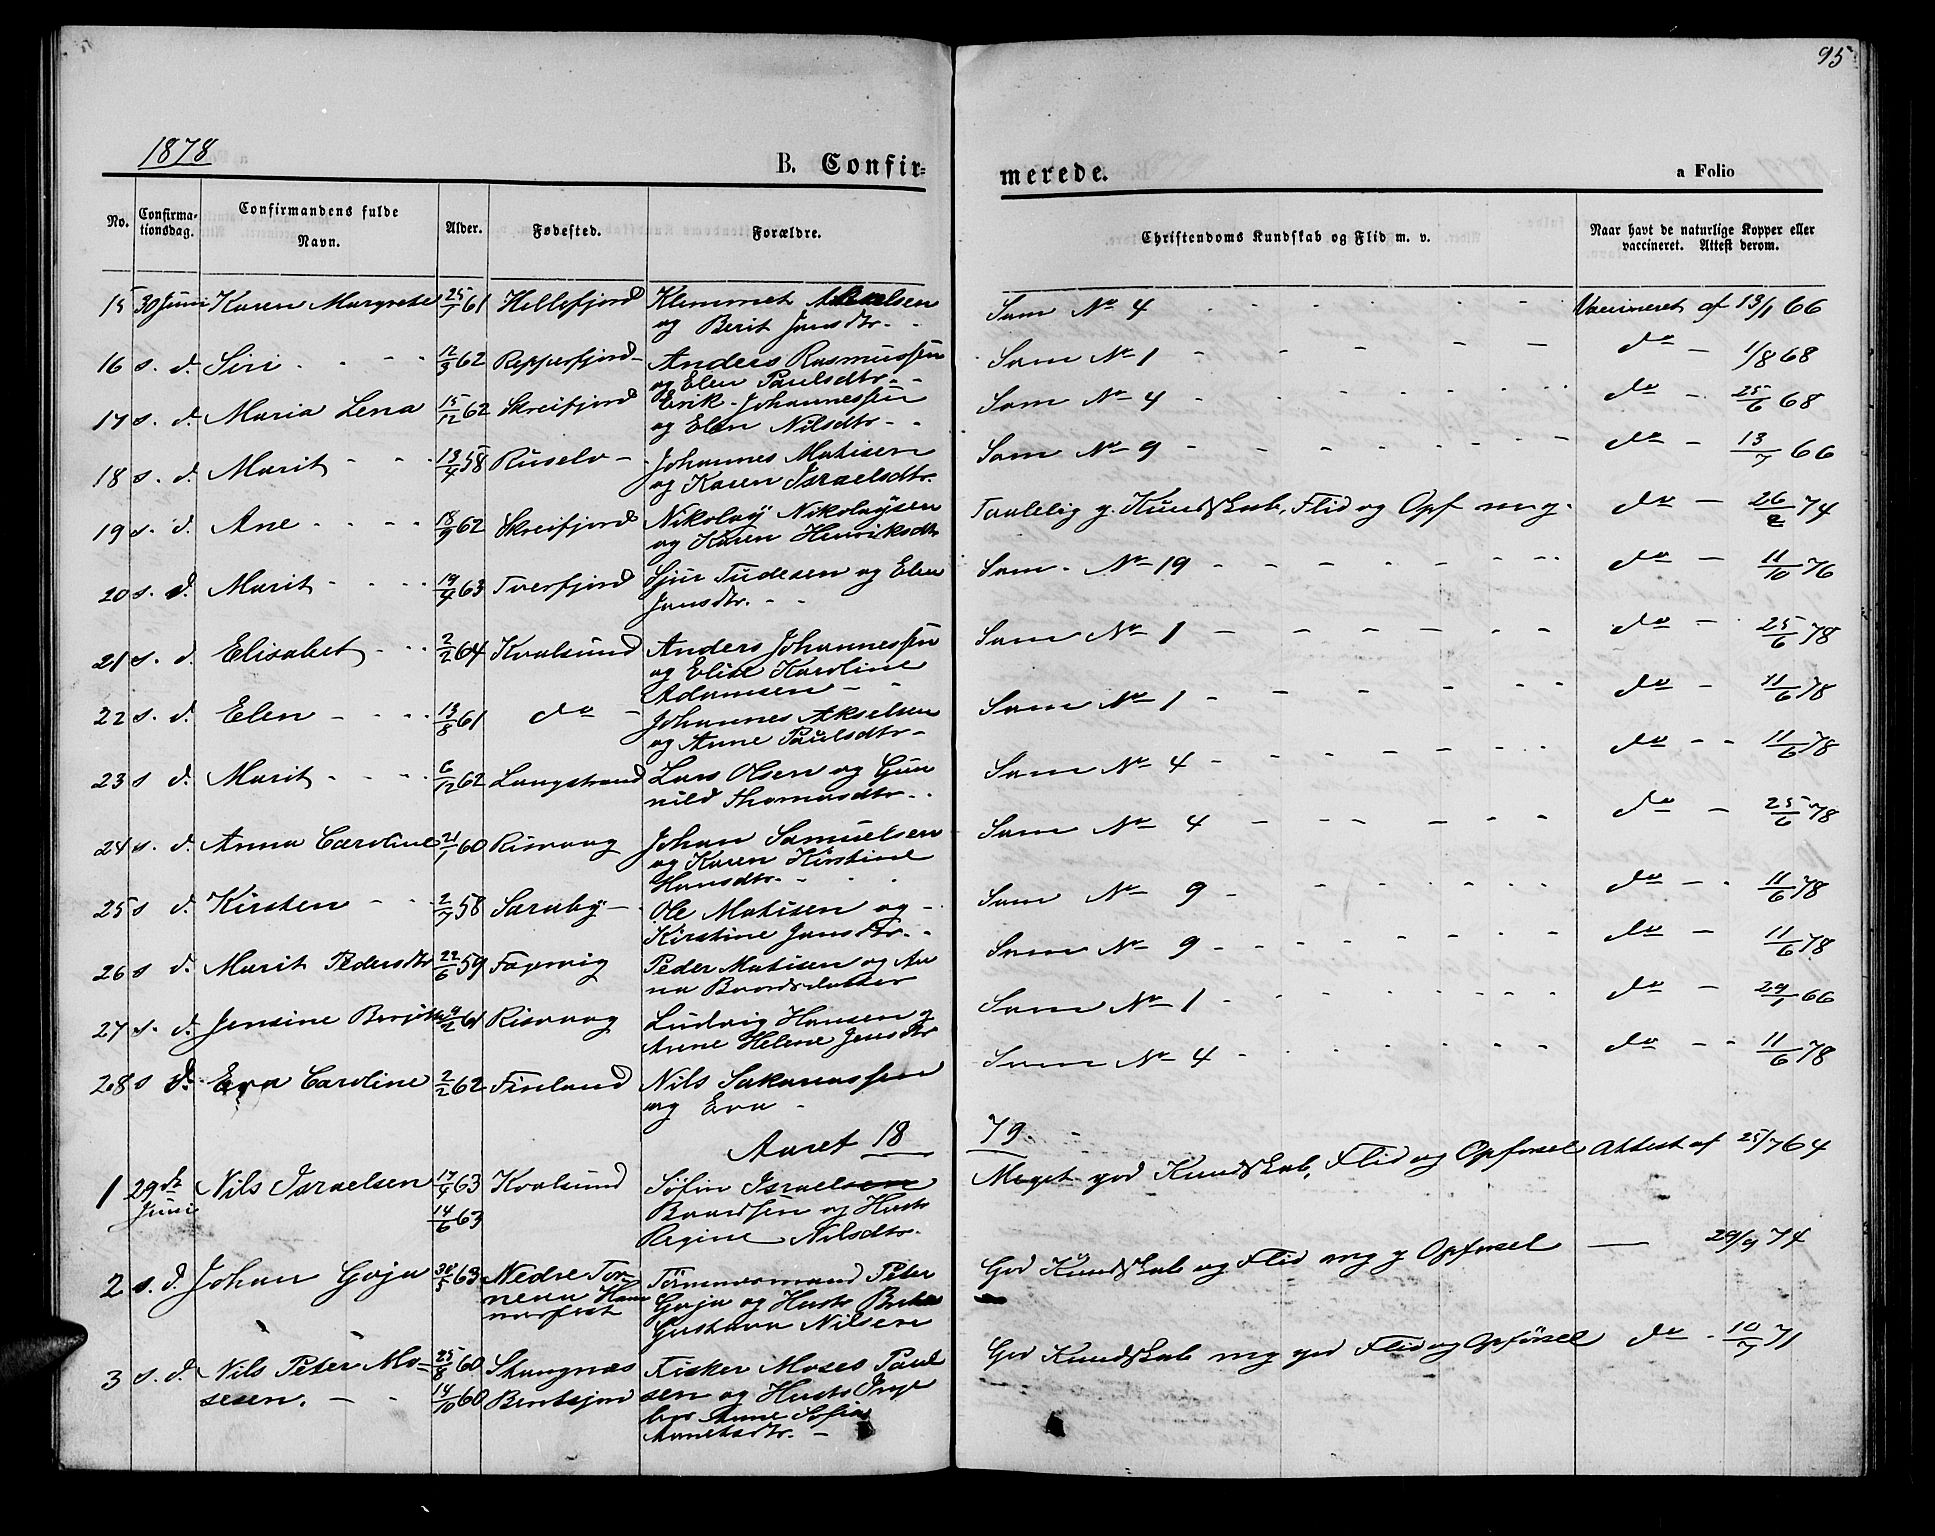 95
1878
B. Confir=
merede.
a Folio
No. Confirma-tionsdag. Confirmandens fulde Navn. Alder. Fødested. Forældre. Christendoms Kundskab og Flid m. v. Naar havt de naturlige Kopper eller vaccineret. Attest derom.
15 30 Juni Karen Margrete 25/7 61 Hellefjord Klemmet
og Berit Jansdtr. Som No 4 Vaccineret af 13/1 66
16 s. d. Siri 12/3 62 Repperfjord Anders Rasmussen
og Elen Paulsdtr. Som No 1 do 1/8 68
17 s. d. Maria Lena 15/12 62 Skreifjord Erik Johannessen
og Elen Nilsdtr. Som No 4 do 25/6 68
18 s. d. Marit 13/4 58 Ruselv Johannes Matisen
og Karen Israelsdtr. Som No 9 do 13/7 66
19 s. d. Ane 18/9 62 Skreifjord Nikolay Nikolaysen
og Karen Henriksdtr Taalelig g. Kundskab, Flid og Opf mg. do 26/2 74
20 s. d. Marit 19/4 63 Tverfjord Sjur Tudesen og Elen
Jansdtr. Som No 19 do 11/10 76
21 s. d. Elisabet 2/2 64 Kvalsund Anders Johannessen
og Elise Karoline
Adamsen Som No 1 do 25/6 78
22 s. d. Elen 13/8 61 do Johannes Akselsen
og Anne Paulsdtr Som No 1 do 11/6 78
23 s. d. Marit 6/12 62 Langstrand Lars Olsen og Gun
nild Thomasdtr. Som No 4 do 11/6 78
24 s. d. Anna Caroline 21/1 60 Risvaag Johan Samuelsen
og Karen Kirstine
Hansdtr. Som No 4 do 25/6 78
25 s. d. Kirsten 2/7 58 Saraby Ole Matisen og
Kirstine Jansdtr. Som No 9 do 11/6 78
26 s. d. Marit Pedersdtr 22/6 59 Fægervig Peder Matisen og An
na Baardsdatter Som No 9 do 11/6 78
27 s. d. Jensine Berjitte 9/2 61 Risvaag Ludvig Hansen og
Anne Helene Jensdtr Som No 1 do 29/1 66
28 s. d. Eva Caroline 2/2 62 Finland Nils Sakariassen
og Eva Som No 4 do 11/6 78
Aaret 18 79.
1 29de Juni Nils Israelsen 17/4 63 14/6 63 Kvalsund Israelsen
Baardsen og Hustr
Regine Nilsdtr. Meget god Kundskab, Flid og Opførsel Attest af 25/7 64
2 s. d. Johan Goja 30/5 63 Nedre Tor-
neaa Ham
merfest Tømmermand Peter
Goja og Hustr
Gustava Nilsen God Kundskab og Flid mg g Opførsel 29/9 74
3 s. d. Nils Peter Mo-
sesen. 25/8 60 14/10 60 Skangnæs
Bentsjord Fisker Moses Paul
sen og Hustr Inge
bor Anne Sofia
God Kundskab mg god Flid og Opførsel do 10/7 71